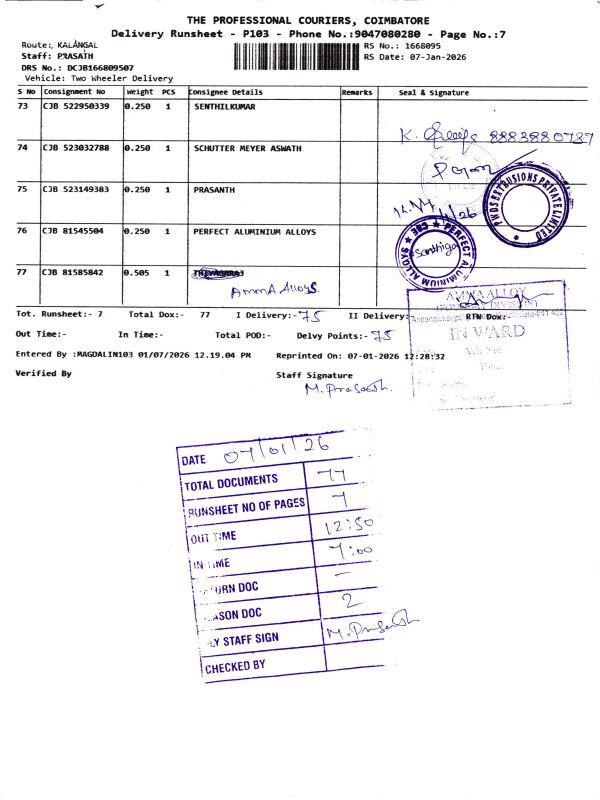 THE PROFESSIONAL COURIERS, COIMBATORE
Delivery Runsheet - P103 - Phone No.:9047080280 - Page No.:7
Route: KALANGAL
RS No.: 1668095
Staff: PRASATH
RS Date: 07-Jan-2026
DRS No.: DCJB166809507
Vehicle: Two Wheeler Delivery
S No Consignment No Weight PCS Consignee Details Remarks Seal & Signature
73 CJB 522950339 0.250 1 SENTHILKUMAR
K. 8883880787
74 CJB 523032788 0.250 1 SCHUTTER MEYER ASWATH
75 CJB 523149383 0.250 1 PRASANTH
EXTRUSIONS PRIVATE LIMITED
76 CJB 81545504 0.250 1 PERFECT ALUMINIUM ALLOYS
PERFECT ALUMINIUM ALLOYS
77 CJB 81585842 0.505 1
AmmA Alloys.
AMMA ALLOY
IN WARD
Tot. Runsheet:- 7 Total Dox:- 77 I Delivery:- 75 II Delivery: RTN Dox:-
Out Time:- In Time:- Total POD:- Delvy Points:- 75
Entered By :MAGDALIN103 01/07/2026 12.19.04 PM Reprinted On: 07-01-2026 12:28:32
Verified By Staff Signature
M. Prasath.
DATE 07/01/26
TOTAL DOCUMENTS 77
RUNSHEET NO OF PAGES 7
OUT TIME 12:50
IN TIME 7:00
URN DOC -
ASON DOC 2
Y STAFF SIGN M. Prasath
CHECKED BY